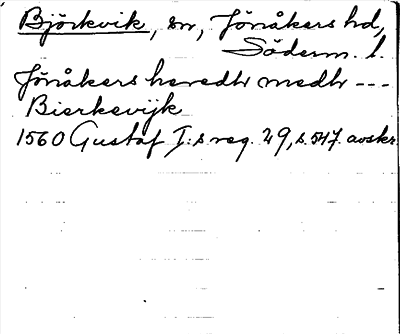 Björkvik, sn, Jönåkers hd,
Söderm. l.
Jönåkers heredh medh ---
Bierkevijk
1560 Gustaf I:s reg. 29, s. 547. avskr.